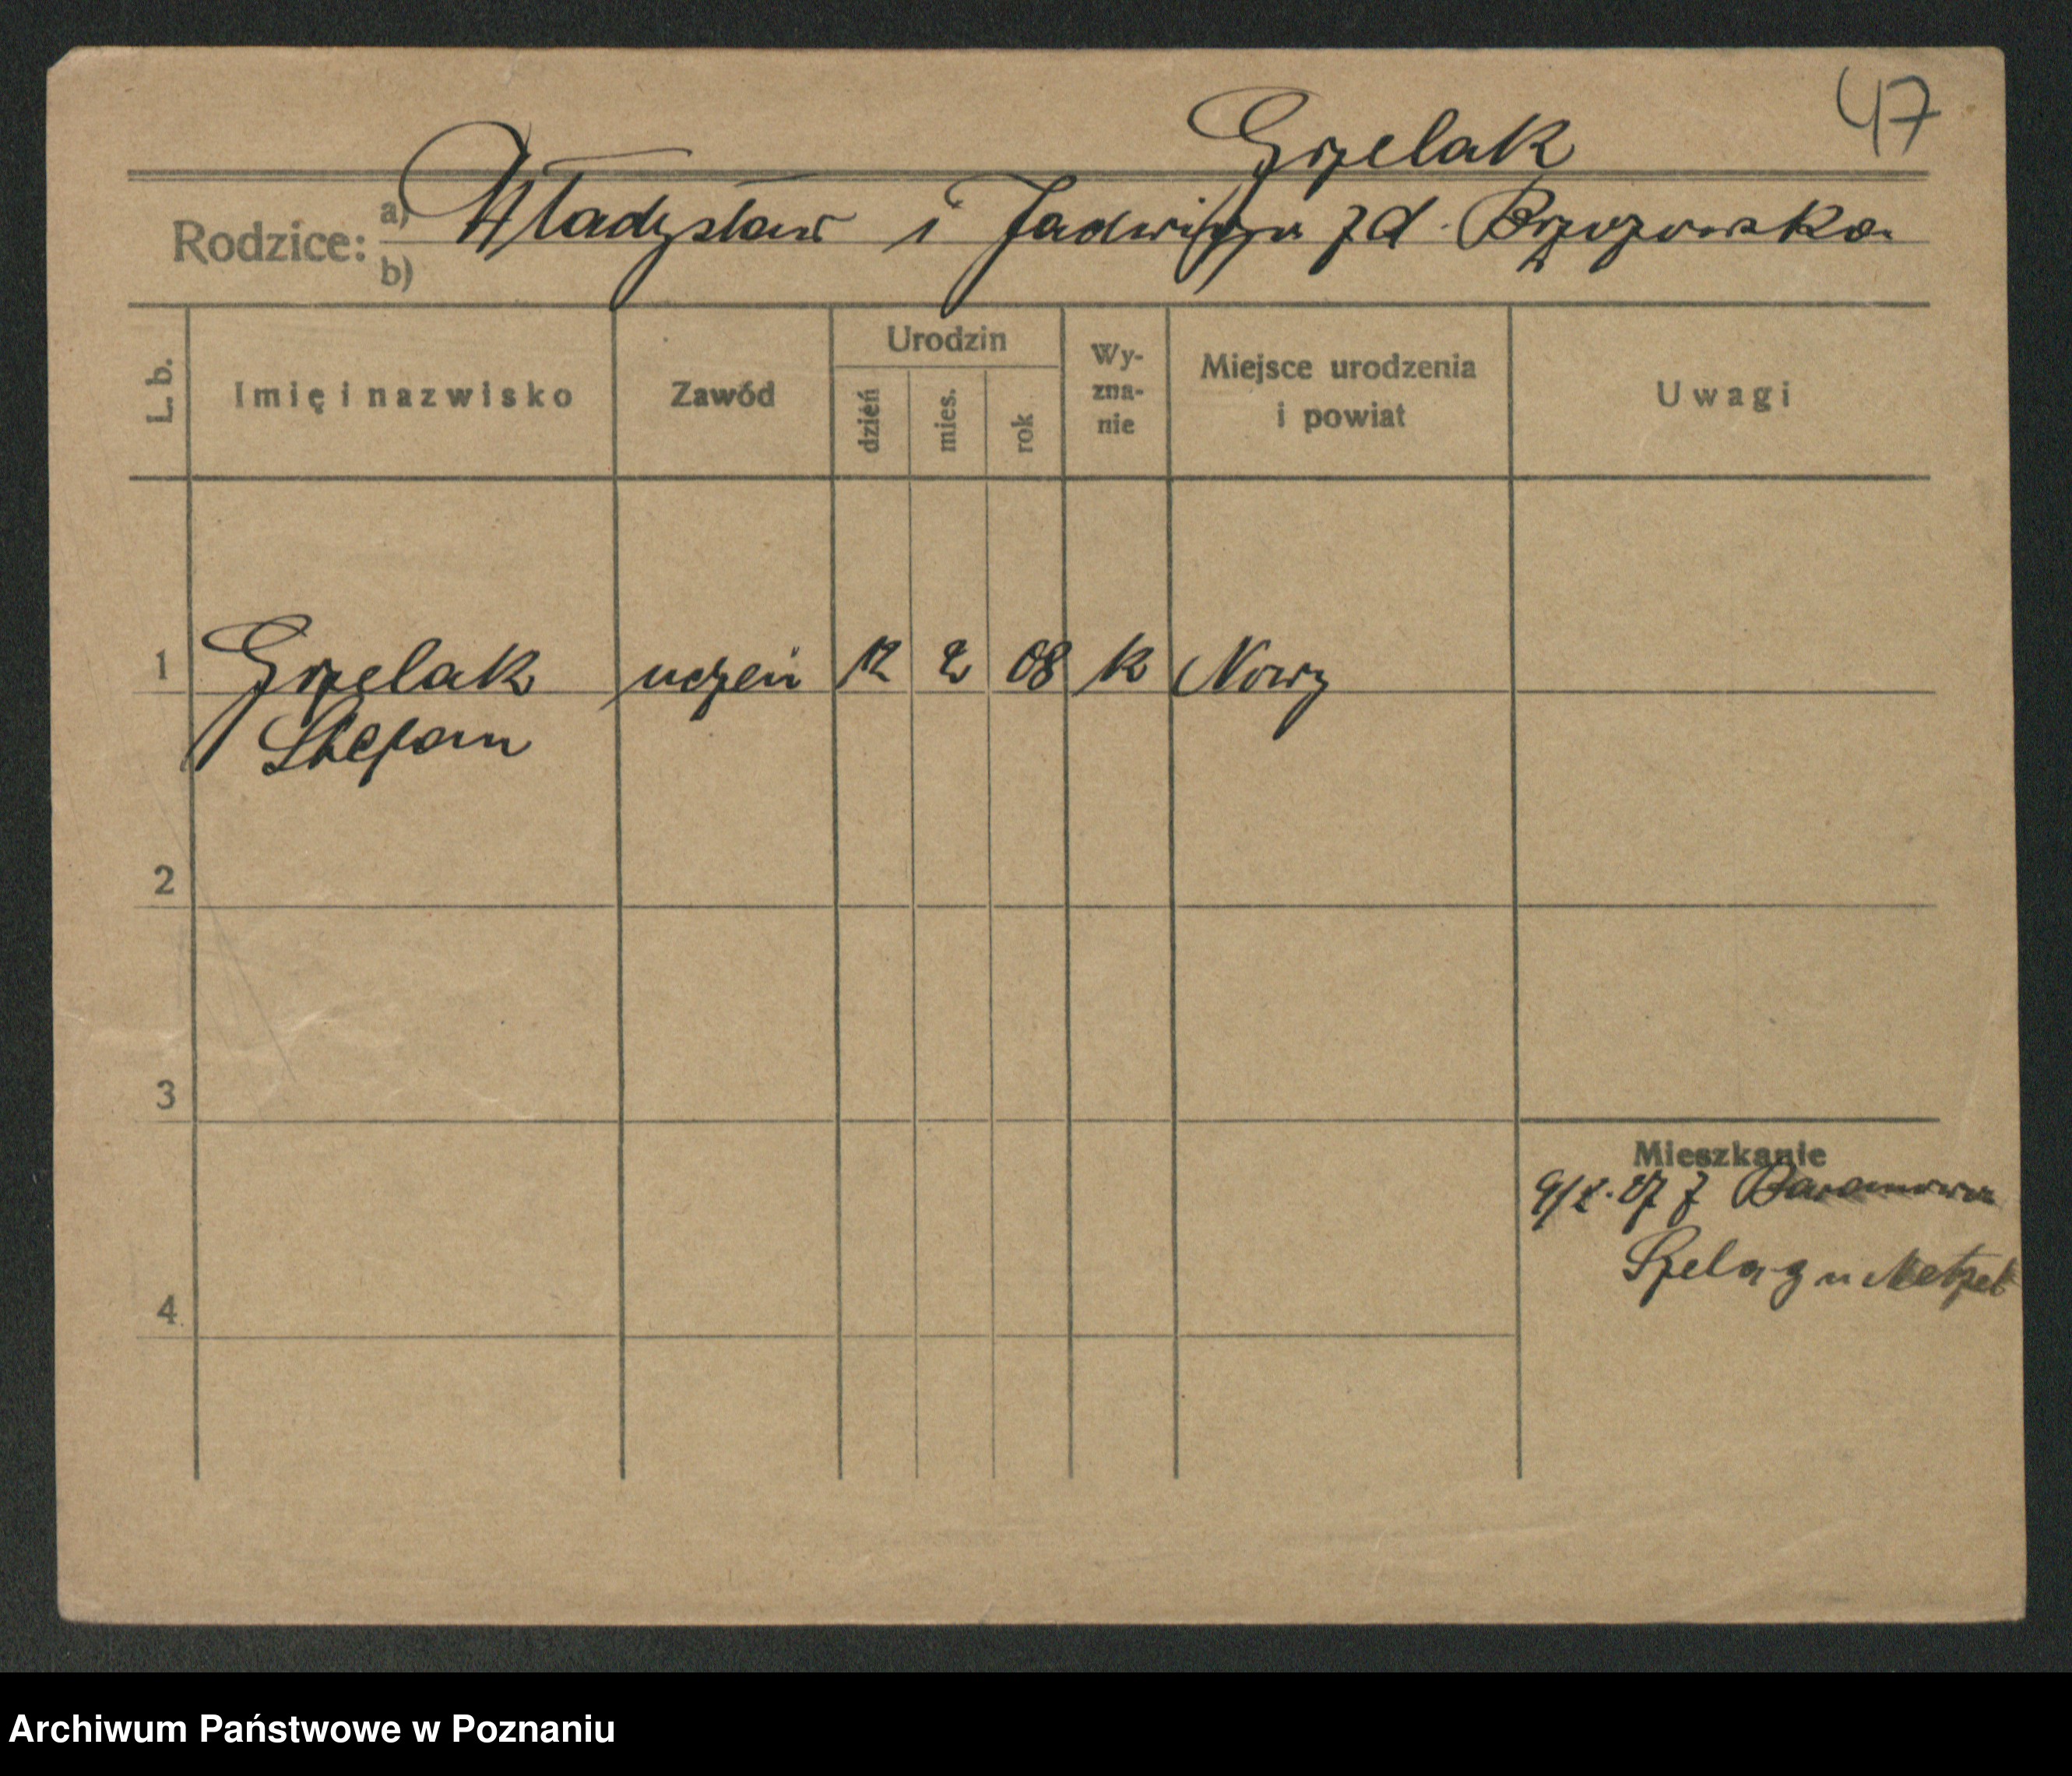 47
Grzelak
Rodzice: a) Władysław i Jadwiga z d. Brzozowska
b)
L. b.
Imię i nazwisko
Zawód
Urodzin
dzień
mies.
rok
Wy-
zna-
nie
Miejsce urodzenia
i powiat
Uwagi
1 Grzelak uczeń 12 2 08 k Nowy
Stefan
2
3
Mieszkanie
27 z Baranowa
Szeląg u
4
Archiwum Państwowe w Poznaniu